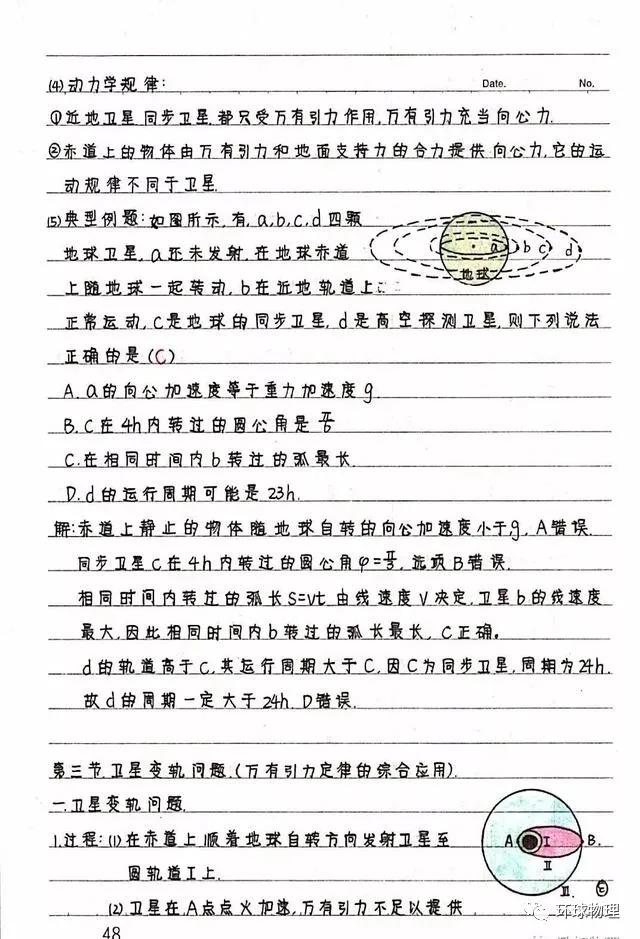 (4)动力学规律:
Date. No.
①近地卫星.同步卫星.都只受万有引力作用,万有引力充当向心力.
②赤道上的物体由万有引力和地面支持力的合力提供向心力,它的运
动规律不同于卫星.
(5)典型例题:如图所示,有,a,b,c,d四颗
地球卫星,a还未发射,在地球赤道
上随地球一起转动,b在近地轨道上
正常运动,c是地球的同步卫星,d是高空探测卫星,则下列说法
正确的是(C)
a b c d
地球
A.a的向心加速度等于重力加速度g
B.c在4h内转过的圆心角是
C.在相同时间内b转过的弧最长.
D.d的运行周期可能是23h.
解:赤道上静止的物体随地球自转的向心加速度小于g,A错误.
同步卫星c在4h内转过的圆心角φ=,选项B错误.
相同时间内转过的弧长S=vt.由线速度V决定,卫星b的线速度
最大,因此相同时间内b转过的弧长最长,C正确。
d的轨道高于c,其运行周期大于C,因C为同步卫星,周期为24h.
故d的周期一定大于24h.D错误.
第三节卫星变轨问题.(万有引力定律的综合应用).
一.卫星变轨问题.
1.过程:(1)在赤道上顺着地球自转方向发射卫星至
圆轨道Ⅰ上.
(2)卫星在A点点火加速,万有引力不足以提供
A Ⅰ B.
Ⅱ
Ⅲ.
环球物理
48